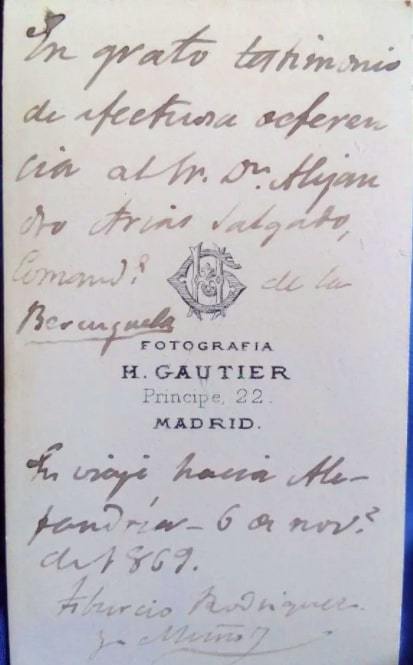 En grato testimonio
de afectuosa deferen
cia al Sr. Dn. Alejan
dro Arias Salgado,
Comand.e de la
Berenguela
FOTOGRAFIA
H. GAUTIER
Principe, 22.
MADRID.
En viaje hacia Ale-
jandría - 6 de nov.e
de 1869.
Tiburcio Rodriguez
y Muñoz